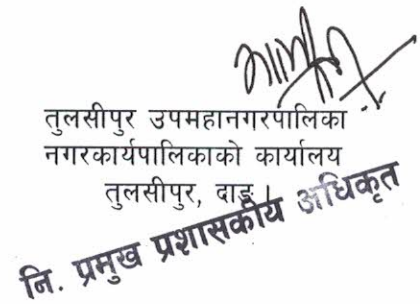 तुलसीपुर उपमहानगरपालिका
नगरकार्यपालिकाको कार्यालय
तुलसीपुर, दाङ ।
नि. प्रमुख प्रशासकीय अधिकृत